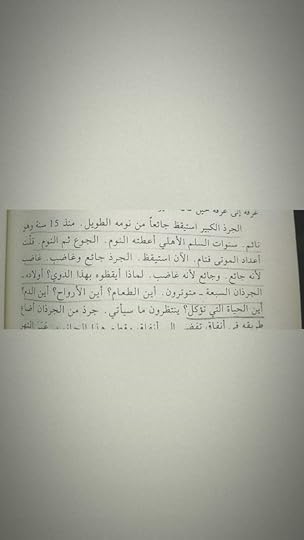 غرفة إلى غرفة
الجرذ الكبير استيقظ جائعاً من نومه الطويل. منذ 15 سنة وهو
نائم. سنوات السلم الأهلي أعطته النوم. الجوع ثم النوم. قلّت
أعداد الموتى فنام. الآن استيقظ. الجرذ جائع وغاضب. غاضب
لأنه جائع. وجائع لأنه غاضب. لماذا أيقظوه بهذا الدوي؟ أولاده..
الجرذان السبعة ـ متوترون. أين الطعام؟ أين الأرواح؟ أين الدم؟
أين الحياة التي تؤكل؟ ينتظرون ما سيأتي. جرذ من الجرذان أضاع
طريقه في أنفاق تفضي إلى أنفاق